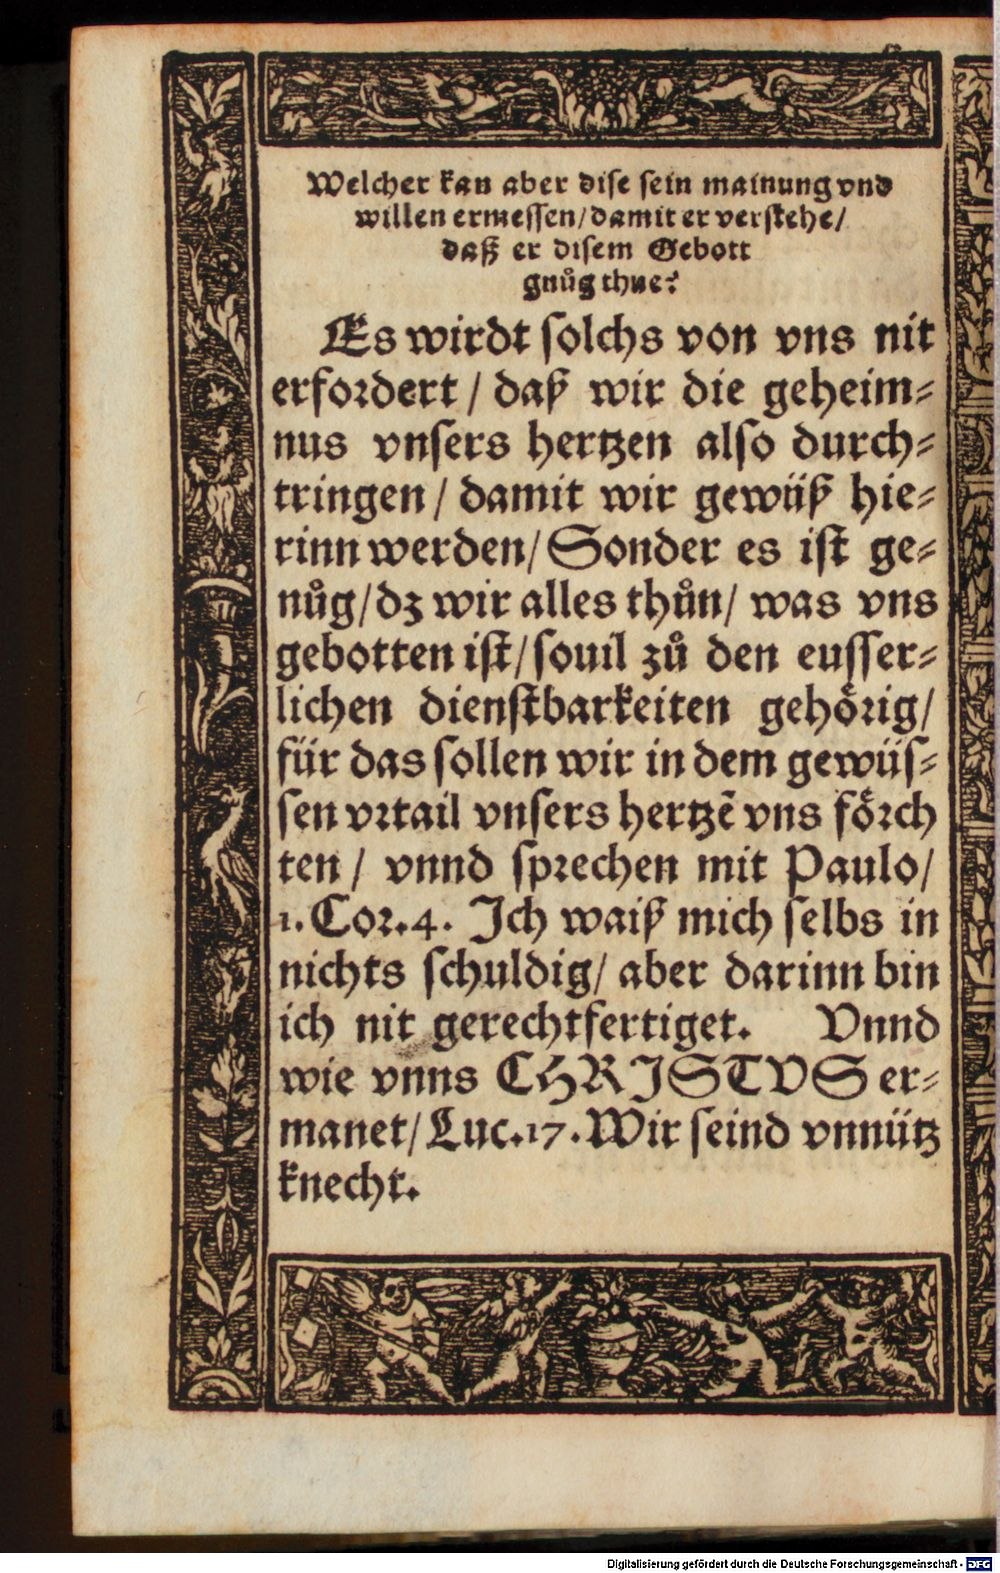 Welcher kan aber dise sein mainung vnd
willen ermessen/ damit er verstehe/
daß er disem Gebott
gnůg thue?
Es wirdt solchs von vns nit
erfordert / daß wir die geheim⸗
nus vnsers hertzen also durch⸗
tringen / damit wir gewüß hie⸗
rinn werden/ Sonder es ist ge⸗
nůg/ dz wir alles thůn/ was vns
gebotten ist/ souil zů den eusser⸗
lichen dienstbarkeiten gehoͤrig/
für das sollen wir in dem gewüs⸗
sen vrtail vnsers hertzẽ vns foͤrch
ten / vnnd sprechen mit Paulo/
1. Cor. 4. Ich waiß mich selbs in
nichts schuldig/ aber darinn bin
ich nit gerechtfertiget. Vnnd
wie vnns CHRISTVS er⸗
manet/ Luc. 17. Wir seind vnnütz
knecht.
Digitalisierung gefördert durch die Deutsche Forschungsgemeinschaft - DFG